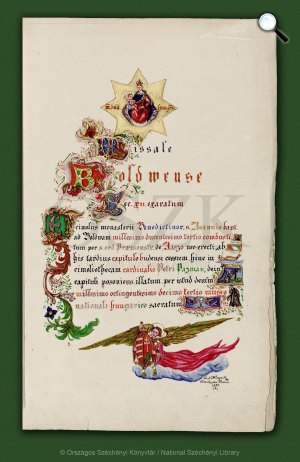 Missale
Boldwense
Sec. XII. exaratum
Cimelius monasterii Benedictinor. S. Joannis bapt.
ad Boldvam millesimo ducentesimo tertio combusti
tum per s. ord. Praemonstr. de
his tardius capitulo budensi cessum, hinc in
cimeliothecam cardinalis Petri Pazman, dein
capituli posoniens. illatum per istud demum
millesimo octingentesimo decimo tertio museo
nationali hungarico sacratum
© Országos Széchényi Könyvtár / National Széchényi Library